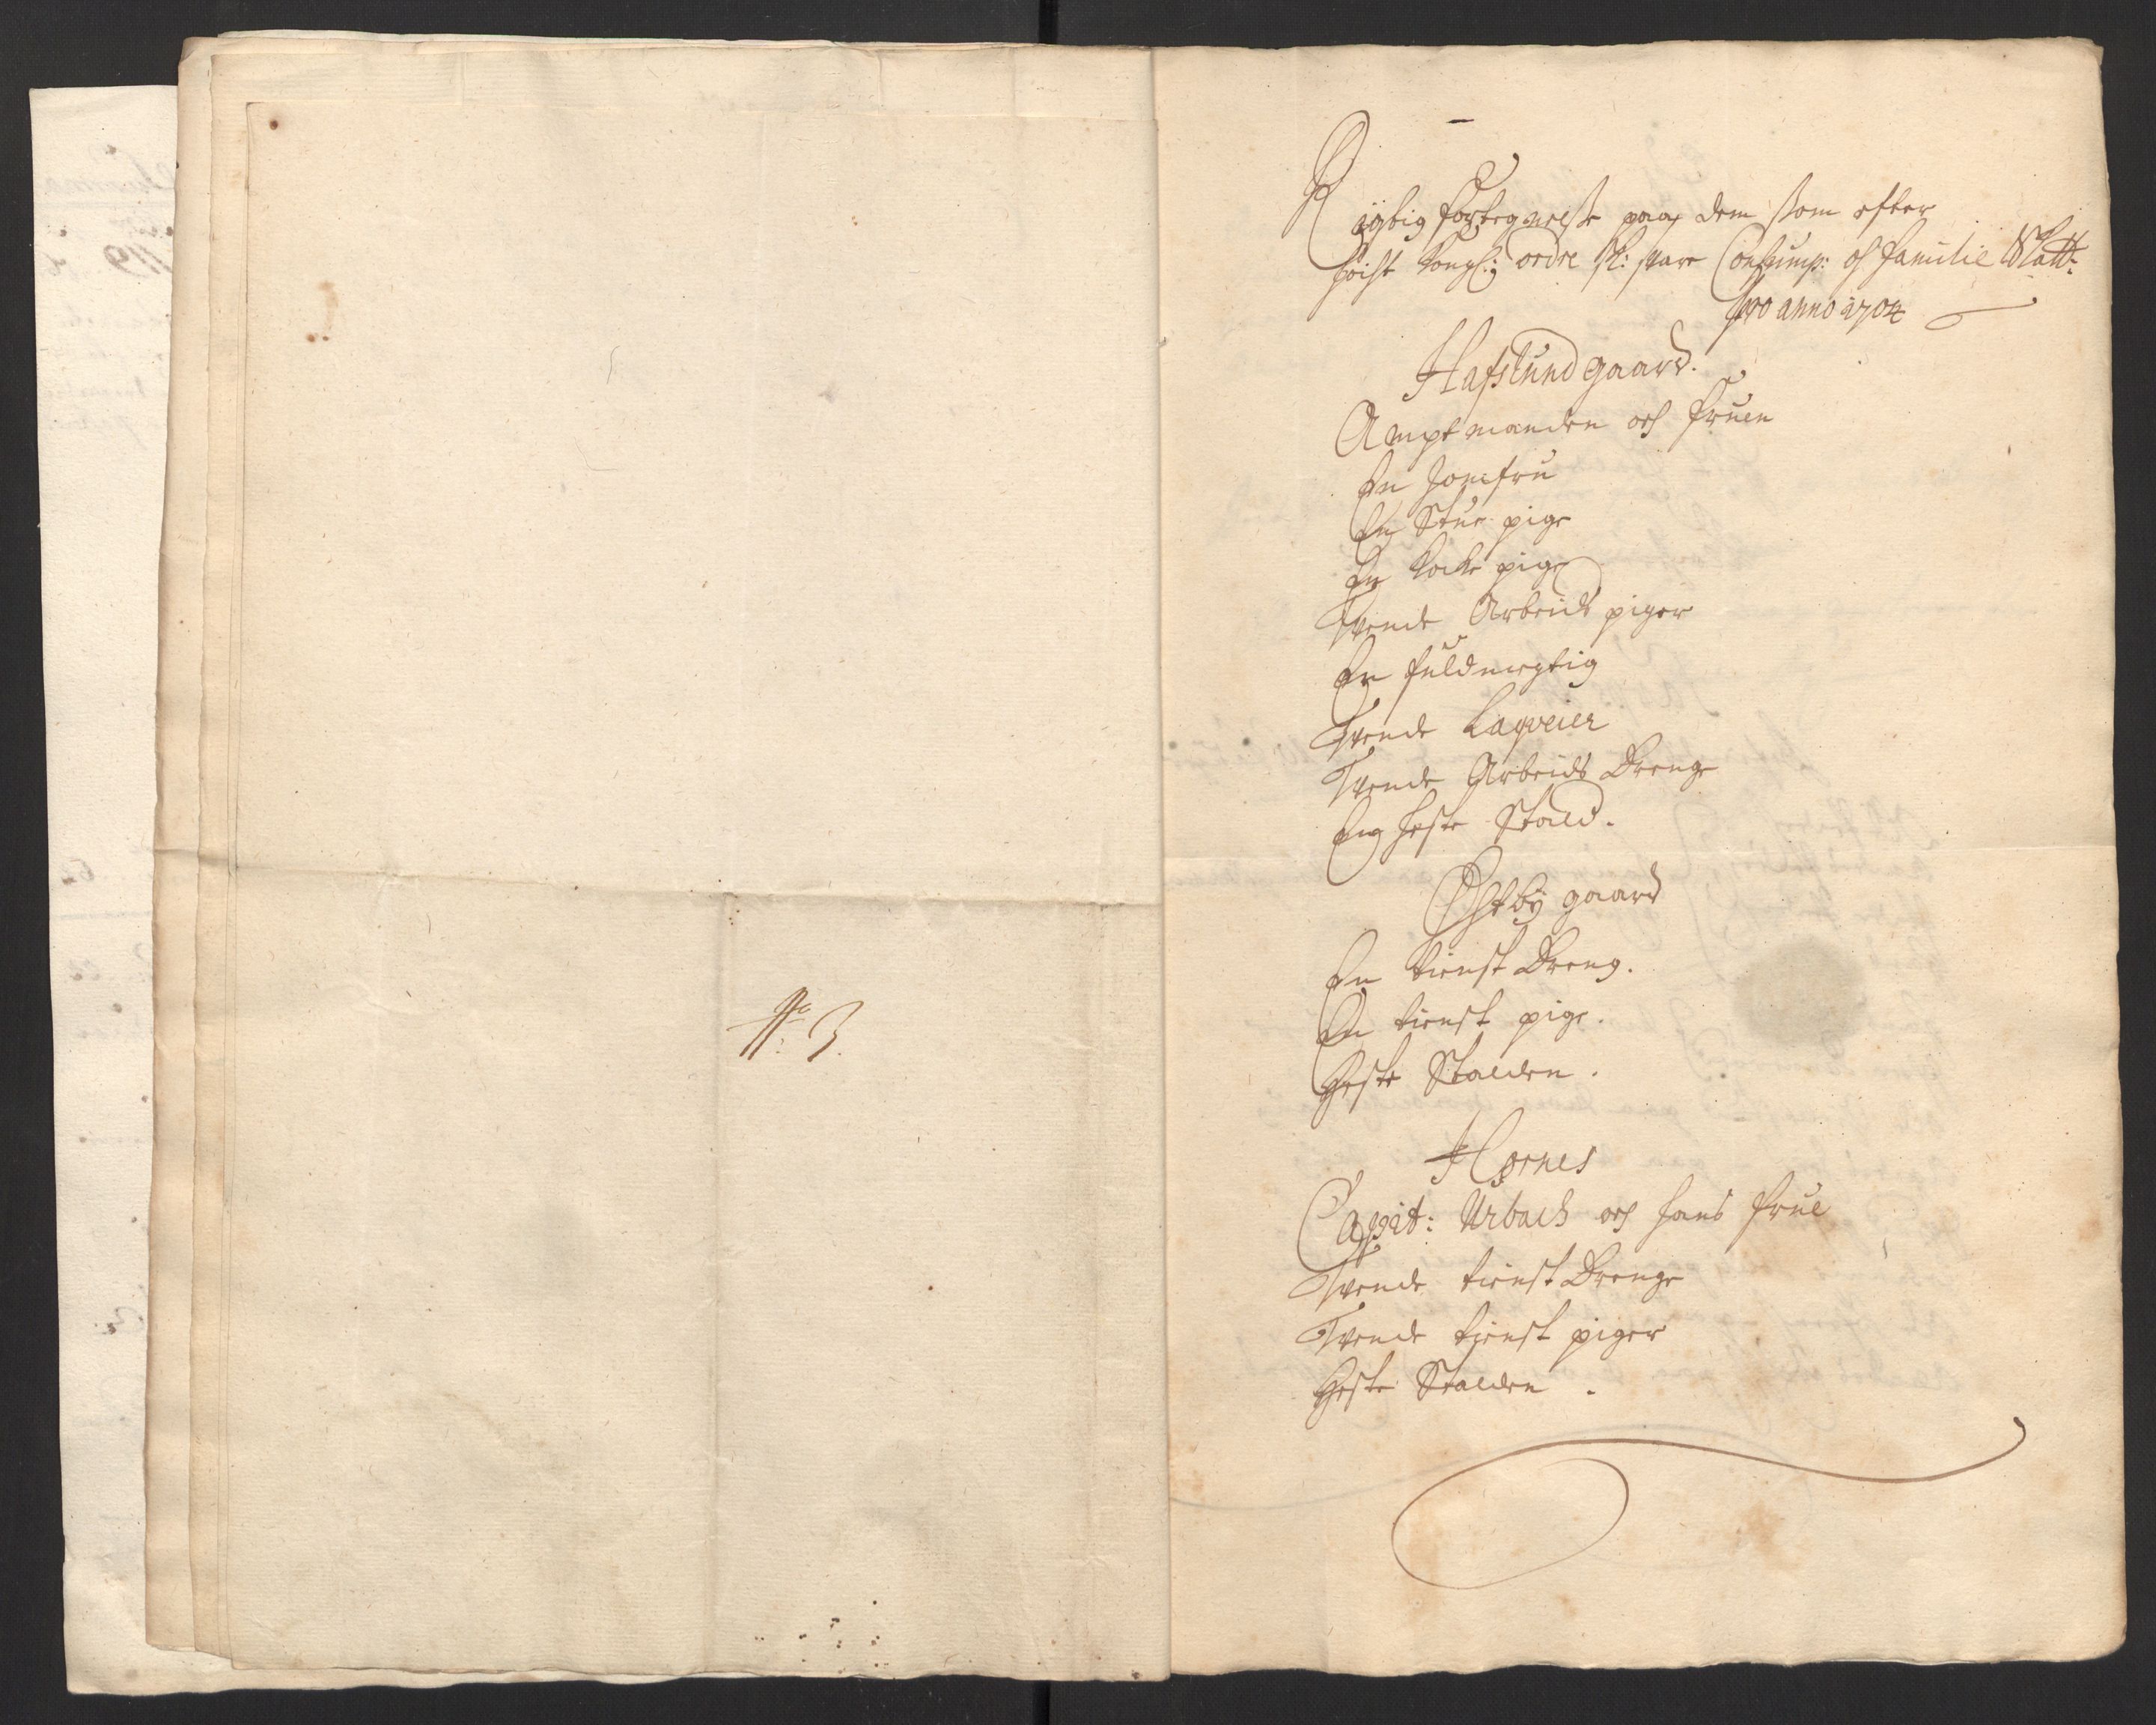 No: 3.
Rigtig fortegnelse paa dem som efter
høist Kongl: ordre sk: svare Consump: og familie Skatt:
pro anno 1704
Hafslund gaard.
Amptmanden och Fruen
En Jomfru
En Stue pige
En Kocke pige
Tvende Arbeids piger
En fuldmegtig
Tvende Laqveier
Tvende Arbeids Drenge
En heste Stald.
Østby gaard
En tienst Dreng.
En tienst pige.
Heste Stalden.
Hornes
Capit: Urbach och hans Frue
Tvende tienst Drenge
Tvende tienst piger
Heste Stalden.